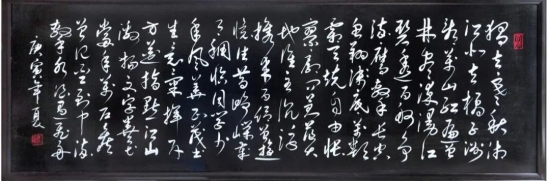 独立寒秋湘
江北去橘子洲
头看万山红遍层
林尽染漫江
碧透百舸争
流鹰击长空
鱼翔浅底万类
霜天竞自由怅
寥廓问苍茫大
地谁主沉浮
携来百侣曾游
忆往昔峥嵘岁
月稠恰同学少
年风华正茂书
生意气挥斥
方遒指点江山
激扬文字粪土
当年万户侯
曾记否到中流
击水浪遏飞舟
庚寅年夏